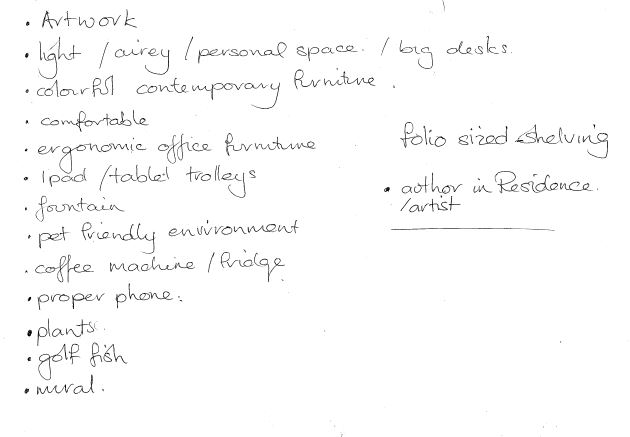 • Artwork
• light / airey / personal space. / big desks.
• colourful contemporary furniture.
• comfortable
• ergonomic office furniture
• Ipad / tablet trolleys
• fountain
• pet friendly environment
• coffee machine / fridge
• proper phone.
• plants.
• golf fish
• mural.
folio sized shelving
• author in Residence.
/artist